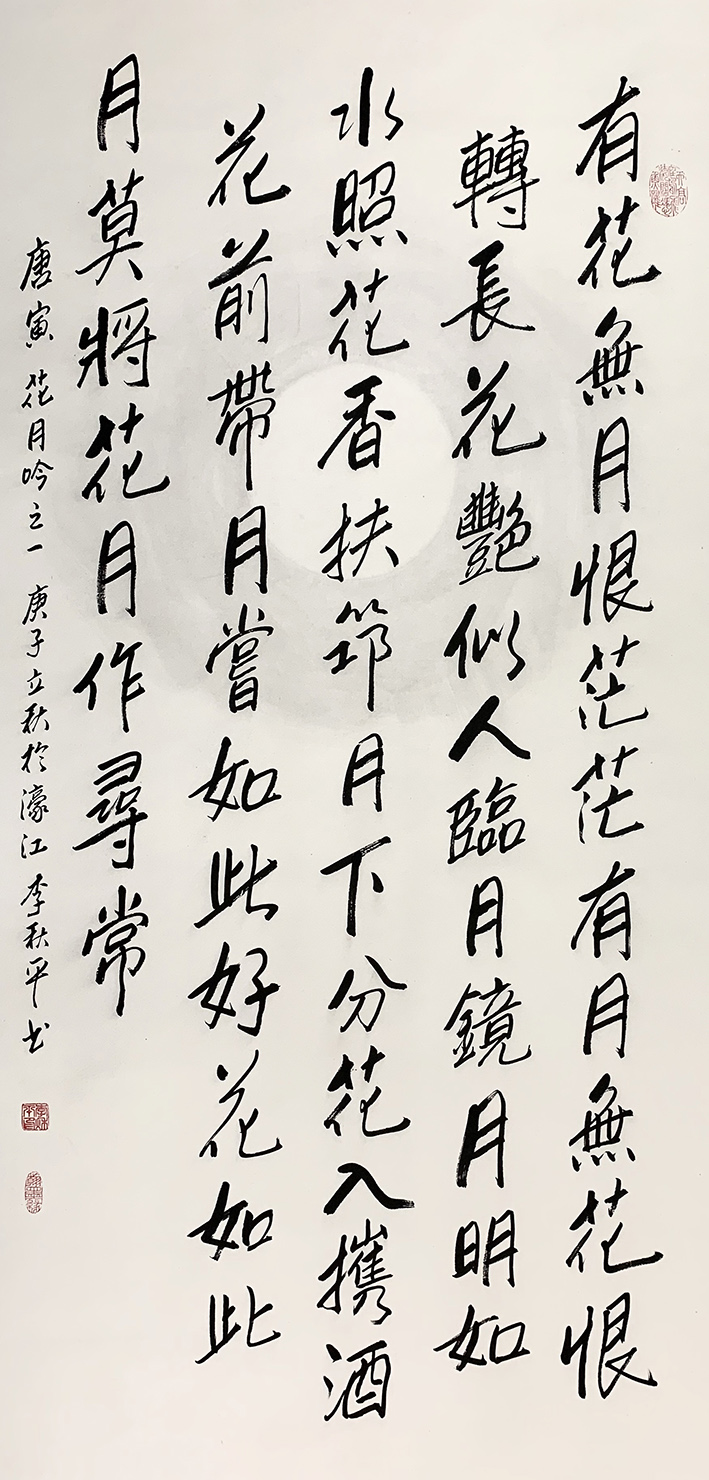 有花無月恨茫茫有月無花恨
轉長花艷似人臨月鏡月明如
水照花香扶筇月下分花入攜酒
花前帶月嘗如此好花如此
月莫將花月作尋常
唐寅花月吟之一 庚子立秋於濠江 李秋平书